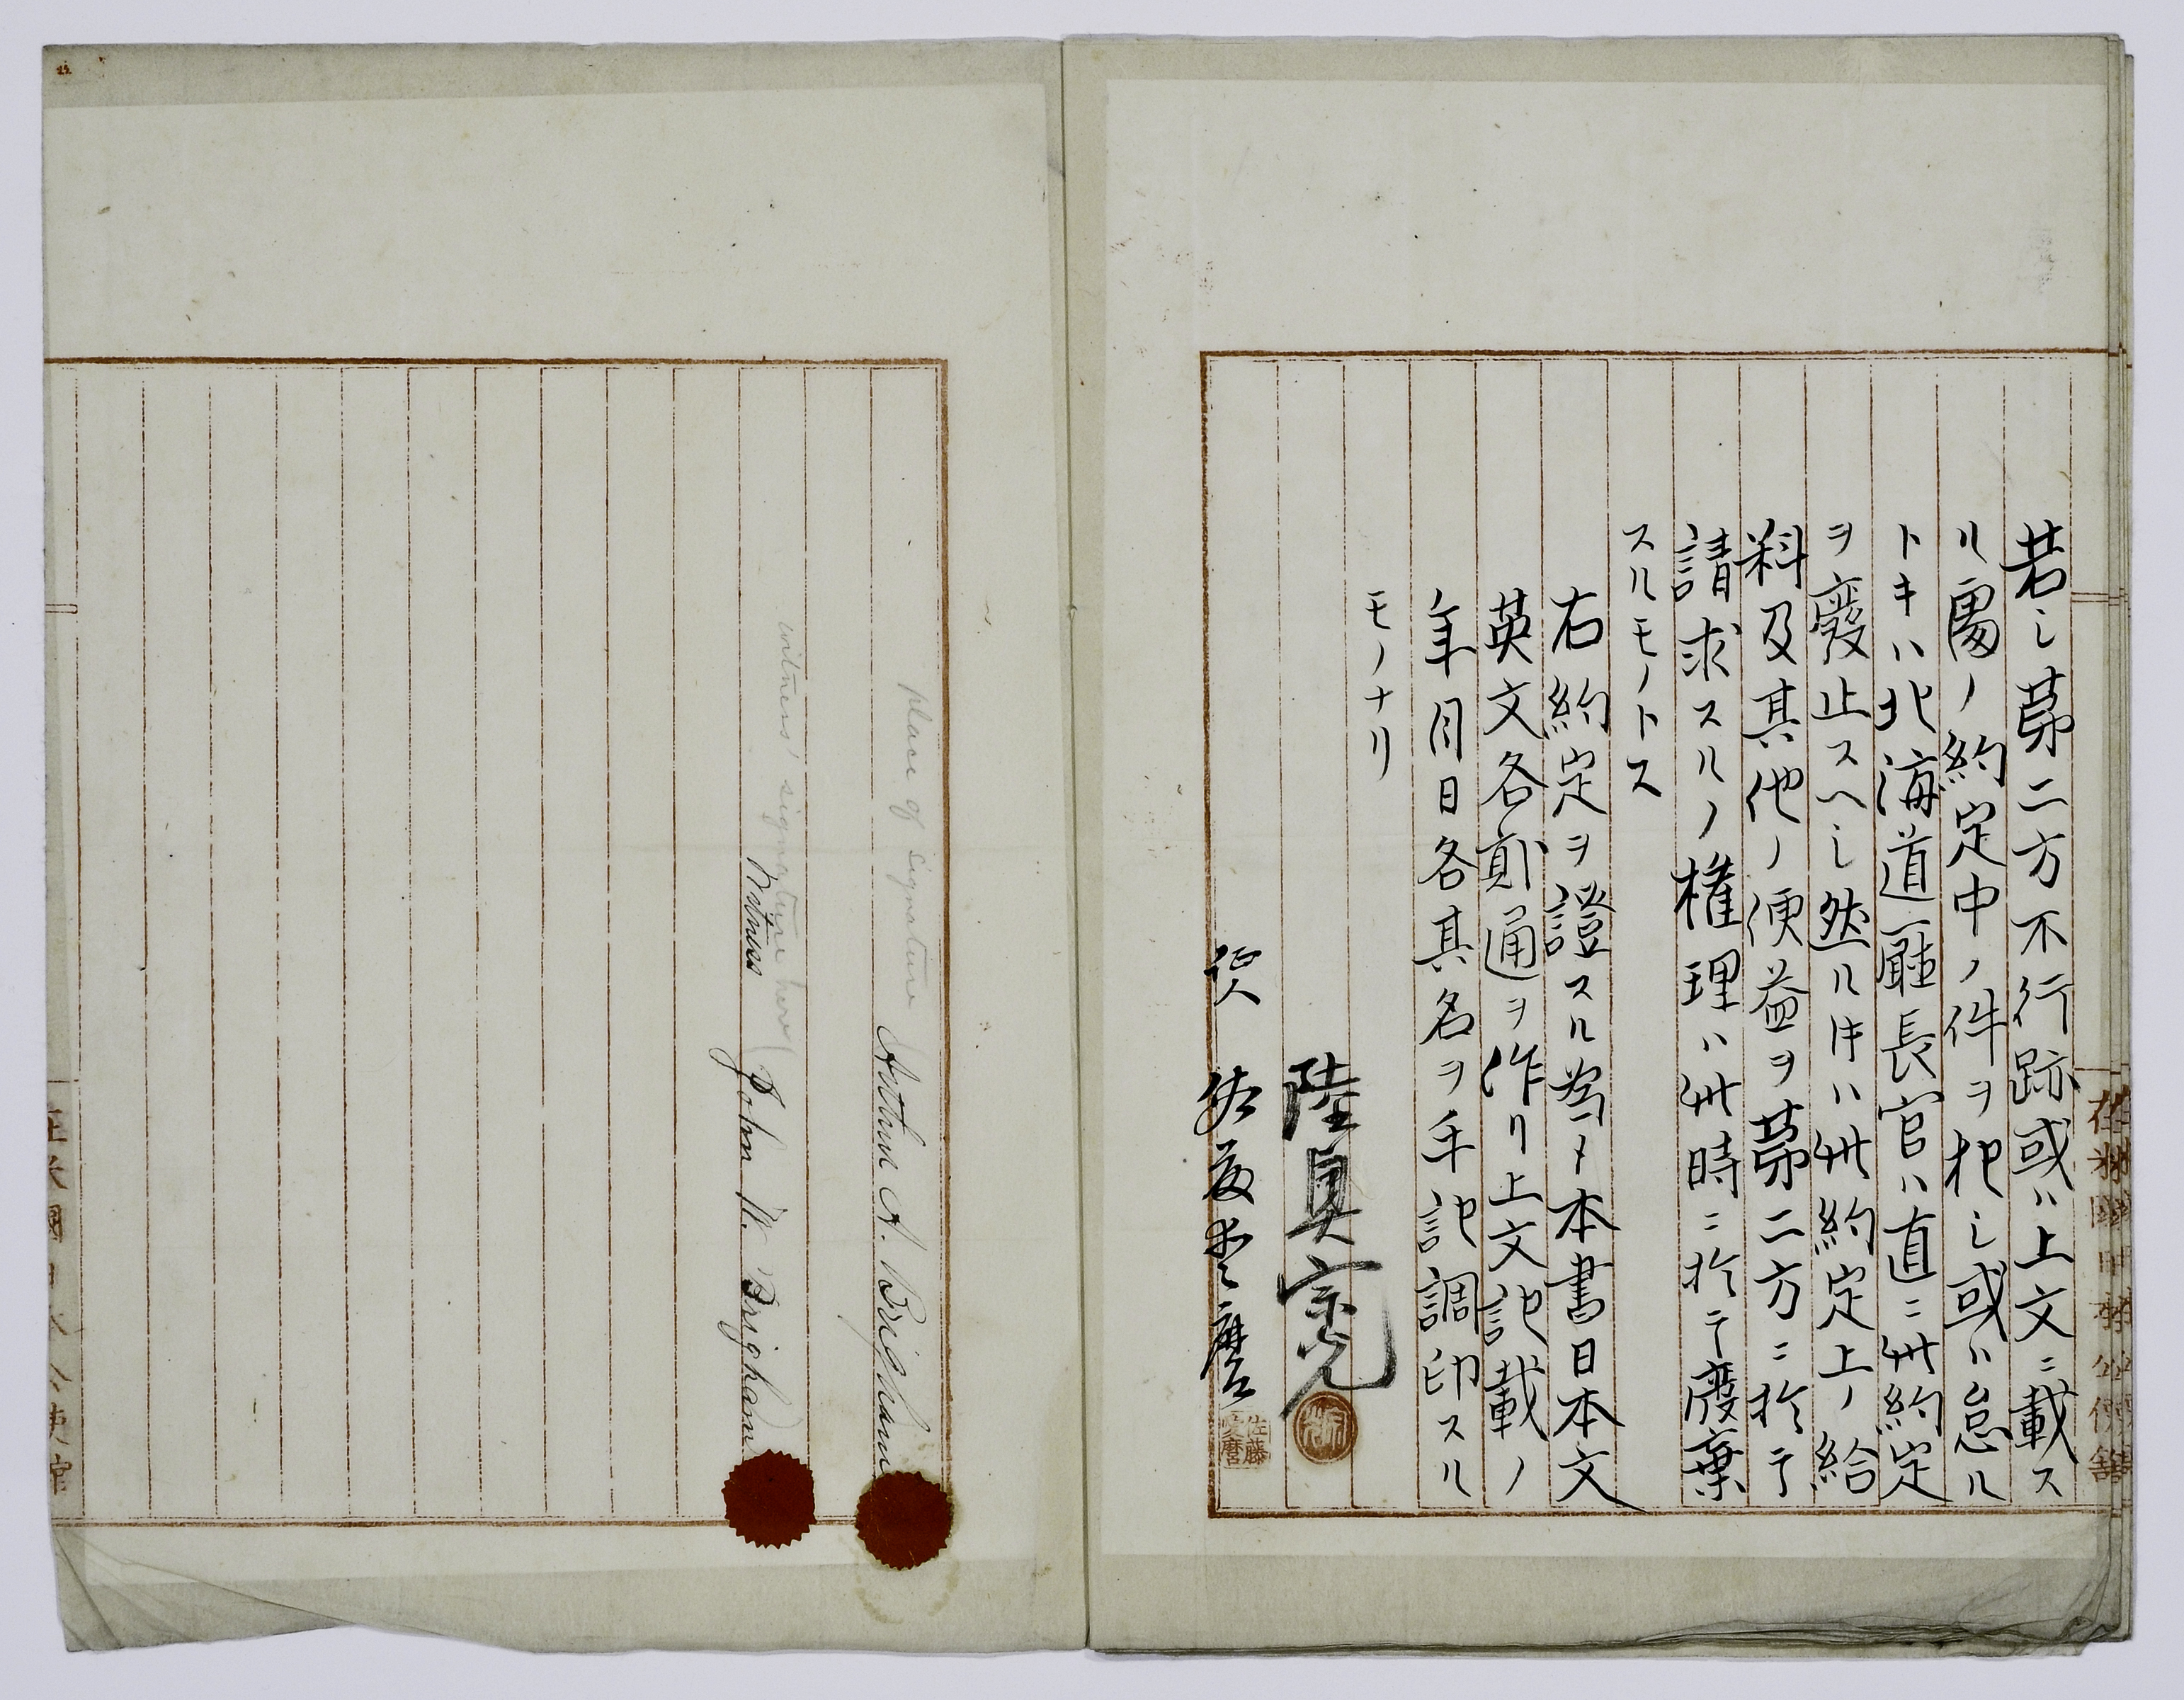 若シ第二方不行跡或ハ上文ニ載ス
ル処ノ約定中ノ件ヲ犯シ或ハ怠ル
トキハ北海道廳長官ハ直ニ此約定
ヲ廢止スヘシ然ル片ハ此約定上ノ給
料及其他ノ便益ヲ第二方ニ於テ
請求スルノ權理ハ此時ニ於テ廢棄
スルモノトス
右約定ヲ證スル爲メ本書日本文
英文各貳通ヲ作リ上文記載ノ
年月日各其名ヲ手記調印スル
モノナリ
陸奥宗光
証人 佐藤愛麿
佐藤愛麿
在米國日本公使舘
place of signature
Arthur A. Brigham
witness' signature here
Witness John W. Brigham